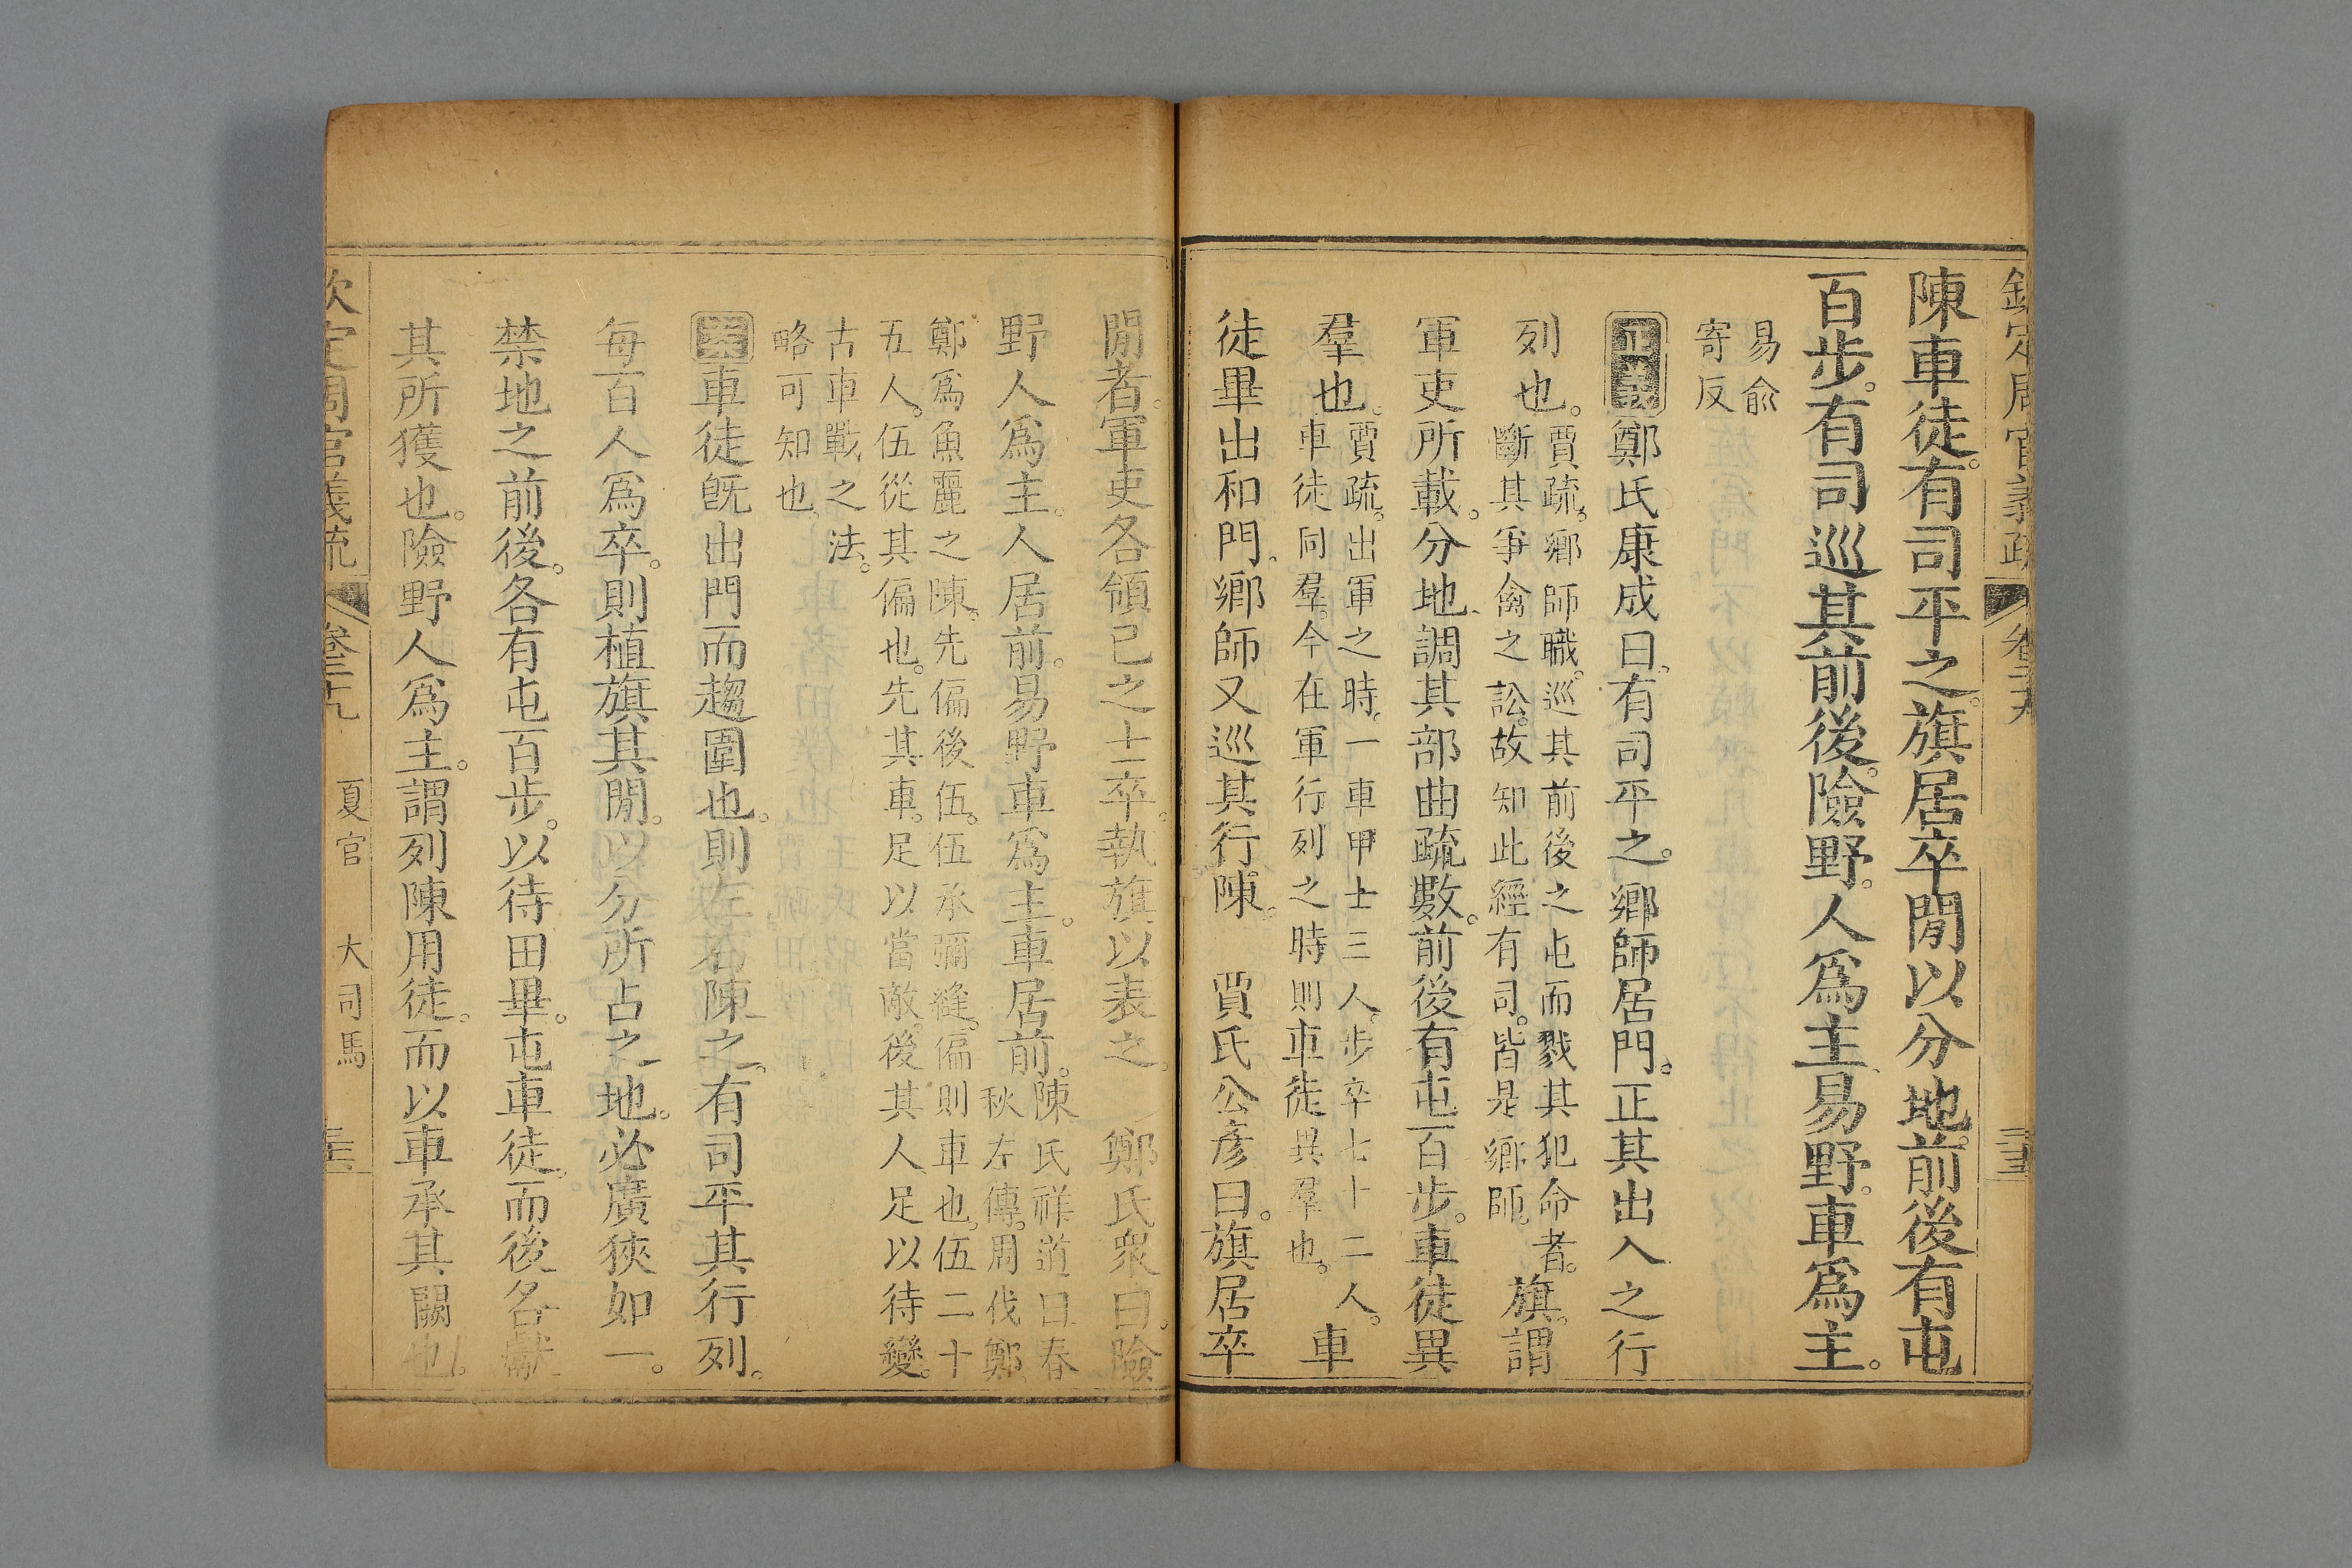 欽定周官義疏 卷二十九
陳車徒。有司平之。旗居卒閒以分地。前後有屯
百步。有司巡其前後。險野。人爲主。易野。車爲主。
易兪
寄反
正義鄭氏康成曰。有司平之。鄉師居門。正其出入之行
列也。
賈疏。鄉師職。巡其前後之屯而戮其犯命者。
斷其爭禽之訟。故知此經有司。皆是鄉師。
旗。謂
軍吏所載。分地。調其部曲疏數。前後有屯百步。車徒異
羣也。
賈疏。出軍之時。一車甲士三人。步卒七十二人。
車徒同羣。今在軍行列之時則車徒異羣也。
車
徒畢出和門。鄉師又巡其行陳。 賈氏公彥曰。旗居卒
閒者。軍吏各領己之士卒。執旗以表之。 鄭氏衆曰。險
野人爲主。人居前。易野車爲主。車居前。
陳氏祥道曰春
秋左傳。周伐鄭。
鄭爲魚麗之陳。先偏後伍。伍承彌縫。偏則車也。伍二十
五人。伍從其偏也。先其車。足以當敵。後其人足以待變。
古車戰之法。
略可知也。
案車徒旣出門而趨圍也。則左右陳之。有司平其行列。
每百人爲卒。則植旗其閒。以分所占之地。必廣狹如一。
禁地之前後。各有屯百步。以待田畢。屯車徒。而後各獻
其所獲也。險野人爲主。謂列陳用徒。而以車承其闕也。
欽定周官義疏 卷二十九 夏官 大司馬